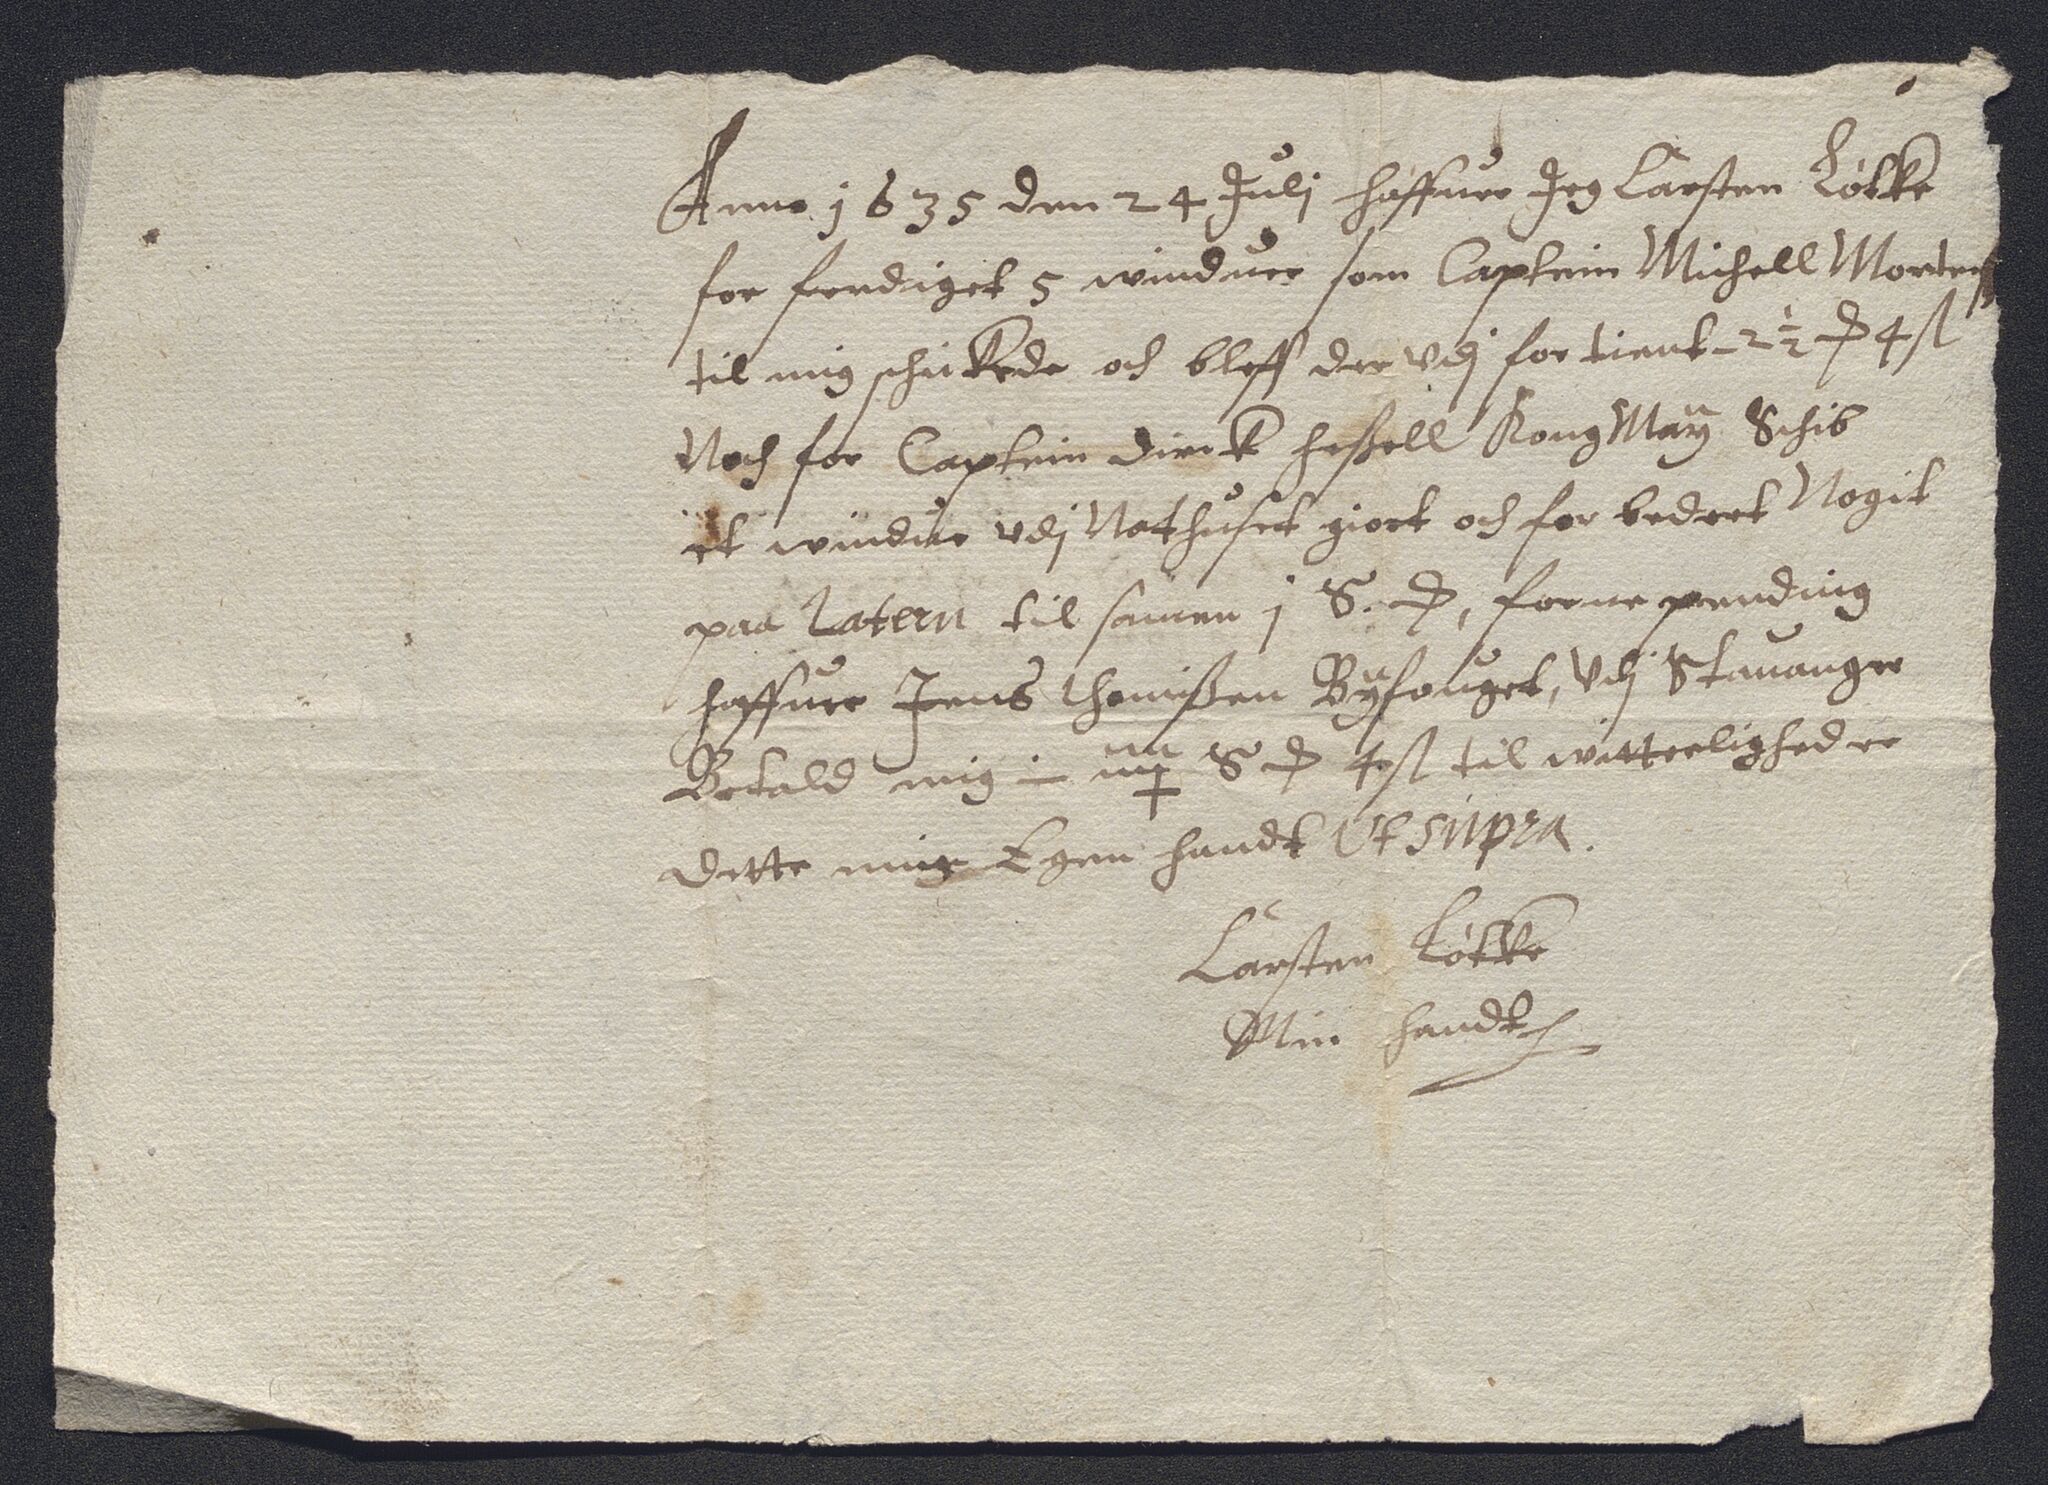 Anno 1635 den 24 Julj haffuer Jeg Carsten Løtke
for ferdiget 5 winduer som Captein Michell Mortenß
til mig schickede och bleff der vdj for tient 2½ D 4 ß
Noch for Captein Dirck heßell Kong May Schib
et winduer vdj Nathuset giort och for bedret Nogit
paa Latern til samen j S. D, forne pending
haffuer Jens thomißen Byfouget, Vdj Stauanger
Betald mig S D 4 ß til witterlighed er
dette mig Egen handt Ut supra.
Carsten Løtke
Min handt